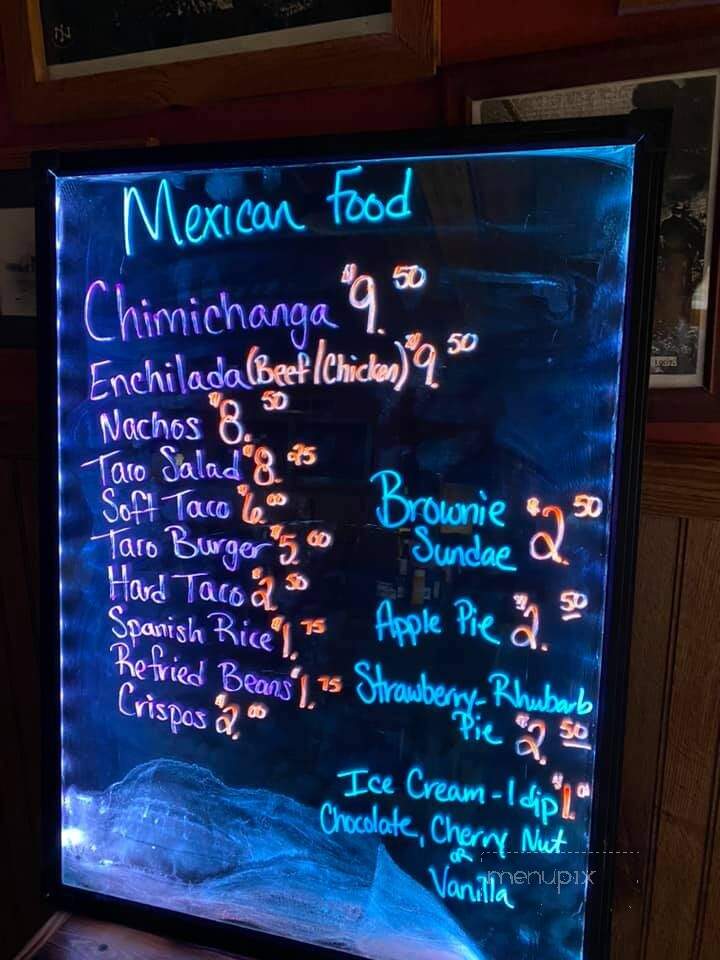 Mexican Food
Chimichanga $9.50
Enchilada (Beef/Chicken) $9.50
Nachos $8.50
Taco Salad $8.25
Soft Taco $6.00
Taco Burger $5.00
Hard Taco $2.50
Spanish Rice $1.75
Refried Beans $1.75
Crispos $2.00
Brownie $2.50
Sundae
Apple Pie $2.50
Strawberry-Rhubarb
Pie $2.50
Ice Cream - 1 dip $1.
Chocolate, Cherry Nut
or
Vanilla
menupix